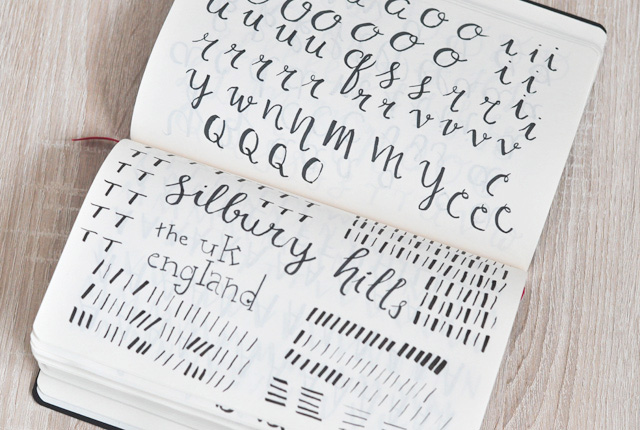 o o o o o o i i i
u u u u q s s r r i
r r r r r r r v v v v
y w n n m m y c
Q Q Q O c c c
T T
T T T T T
T T
silbury hills
T T
the uk
T T
england